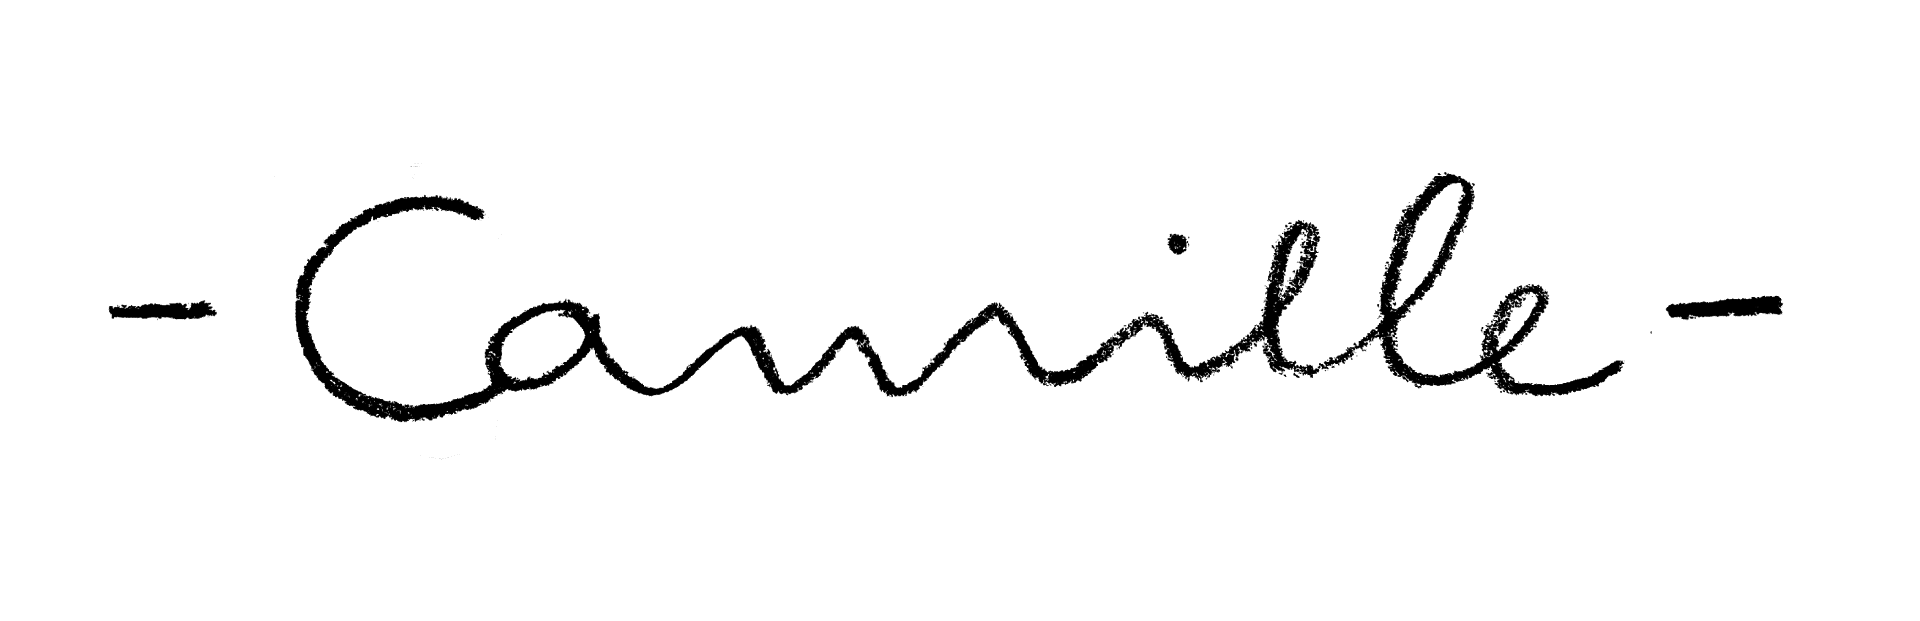 - Camille -